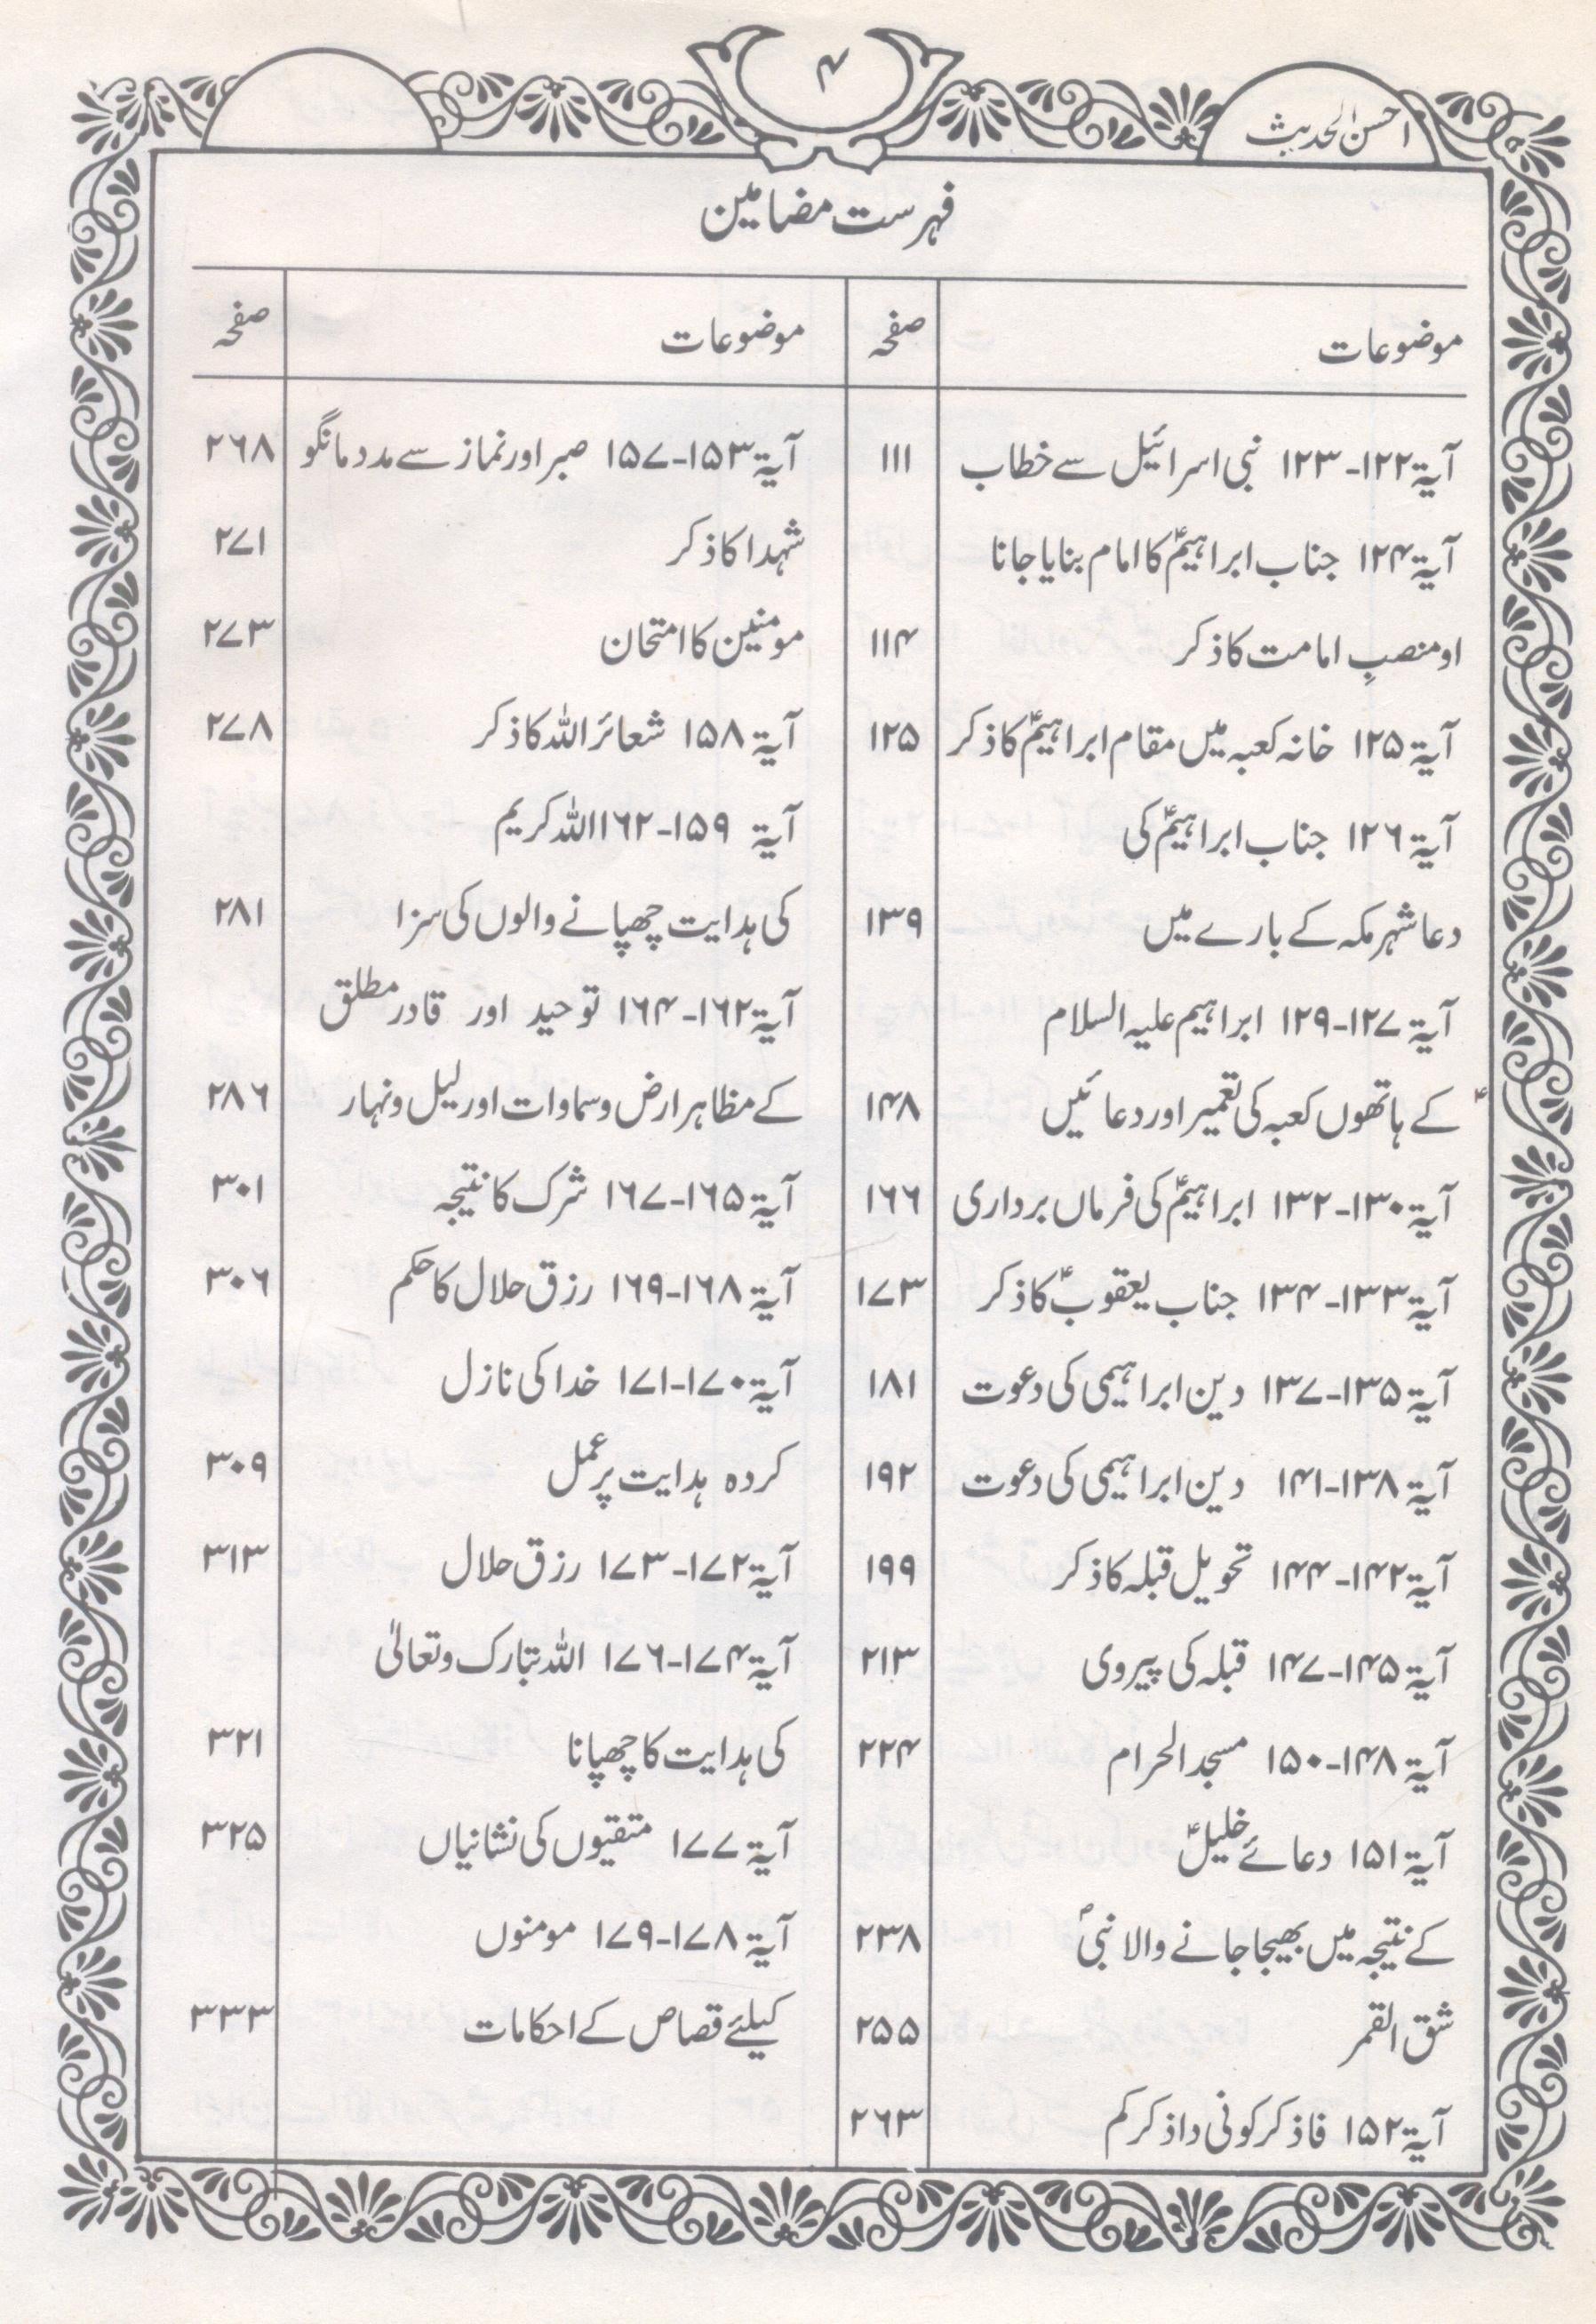 احسن الحدیث
۴
فہرست مضامین
موضوعات صفحہ
آیۃ ۱۲۲-۱۲۳ نبی اسرائیل سے خطاب ۱۱۱
آیۃ ۱۲۴ جناب ابراہیمؑ کا امام بنایا جانا
او منصبِ امامت کا ذکر ۱۱۴
آیۃ ۱۲۵ خانہ کعبہ میں مقام ابراہیمؑ کا ذکر ۱۲۵
آیۃ ۱۲۶ جناب ابراہیمؑ کی
دعا شہر مکہ کے بارے میں ۱۳۹
آیۃ ۱۲۷-۱۲۹ ابراہیم علیہ السلام
کے ہاتھوں کعبہ کی تعمیر اور دعائیں ۱۴۸
آیۃ ۱۳۰-۱۳۲ ابراہیمؑ کی فرماں برداری ۱۶۶
آیۃ ۱۳۳-۱۳۴ جناب یعقوبؑ کا ذکر ۱۷۳
آیۃ ۱۳۵-۱۳۷ دین ابراہیمی کی دعوت ۱۸۱
آیۃ ۱۳۸-۱۴۱ دین ابراہیمی کی دعوت ۱۹۲
آیۃ ۱۴۲-۱۴۴ تحویل قبلہ کا ذکر ۱۹۹
آیۃ ۱۴۵-۱۴۷ قبلہ کی پیروی ۲۱۳
آیۃ ۱۴۸-۱۵۰ مسجد الحرام ۲۲۴
آیۃ ۱۵۱ دعائے خلیلؑ
کے نتیجہ میں بھیجا جانے والا نبیؐ ۲۳۸
شق القمر ۲۵۵
آیۃ ۱۵۲ فاذکرکونی داذکرکم ۲۶۳
موضوعات صفحہ
آیۃ ۱۵۳-۱۵۷ صبر اور نماز سے مدد مانگو ۲۶۸
شہدا کا ذکر ۲۷۱
مومنین کا امتحان ۲۷۳
آیۃ ۱۵۸ شعائر اللہ کا ذکر ۲۷۸
آیۃ ۱۵۹-۱۶۲ اللہ کریم
کی ہدایت چھپانے والوں کی سزا ۲۸۱
آیۃ ۱۶۲-۱۶۴ توحید اور قادر مطلق
کے مظاہر ارض و سماوات اور لیل و نہار ۲۸۶
آیۃ ۱۶۵-۱۶۷ شرک کا نتیجہ ۳۰۱
آیۃ ۱۶۸-۱۶۹ رزق حلال کا حکم ۳۰۶
آیۃ ۱۷۰-۱۷۱ خدا کی نازل
کردہ ہدایت پر عمل ۳۰۹
آیۃ ۱۷۲-۱۷۳ رزق حلال ۳۱۳
آیۃ ۱۷۴-۱۷۶ اللہ تبارک و تعالیٰ
کی ہدایت کا چھپانا ۳۲۱
آیۃ ۱۷۷ متقیوں کی نشانیاں ۳۲۵
آیۃ ۱۷۸-۱۷۹ مومنوں
کیلئے قصاص کے احکامات ۳۳۳